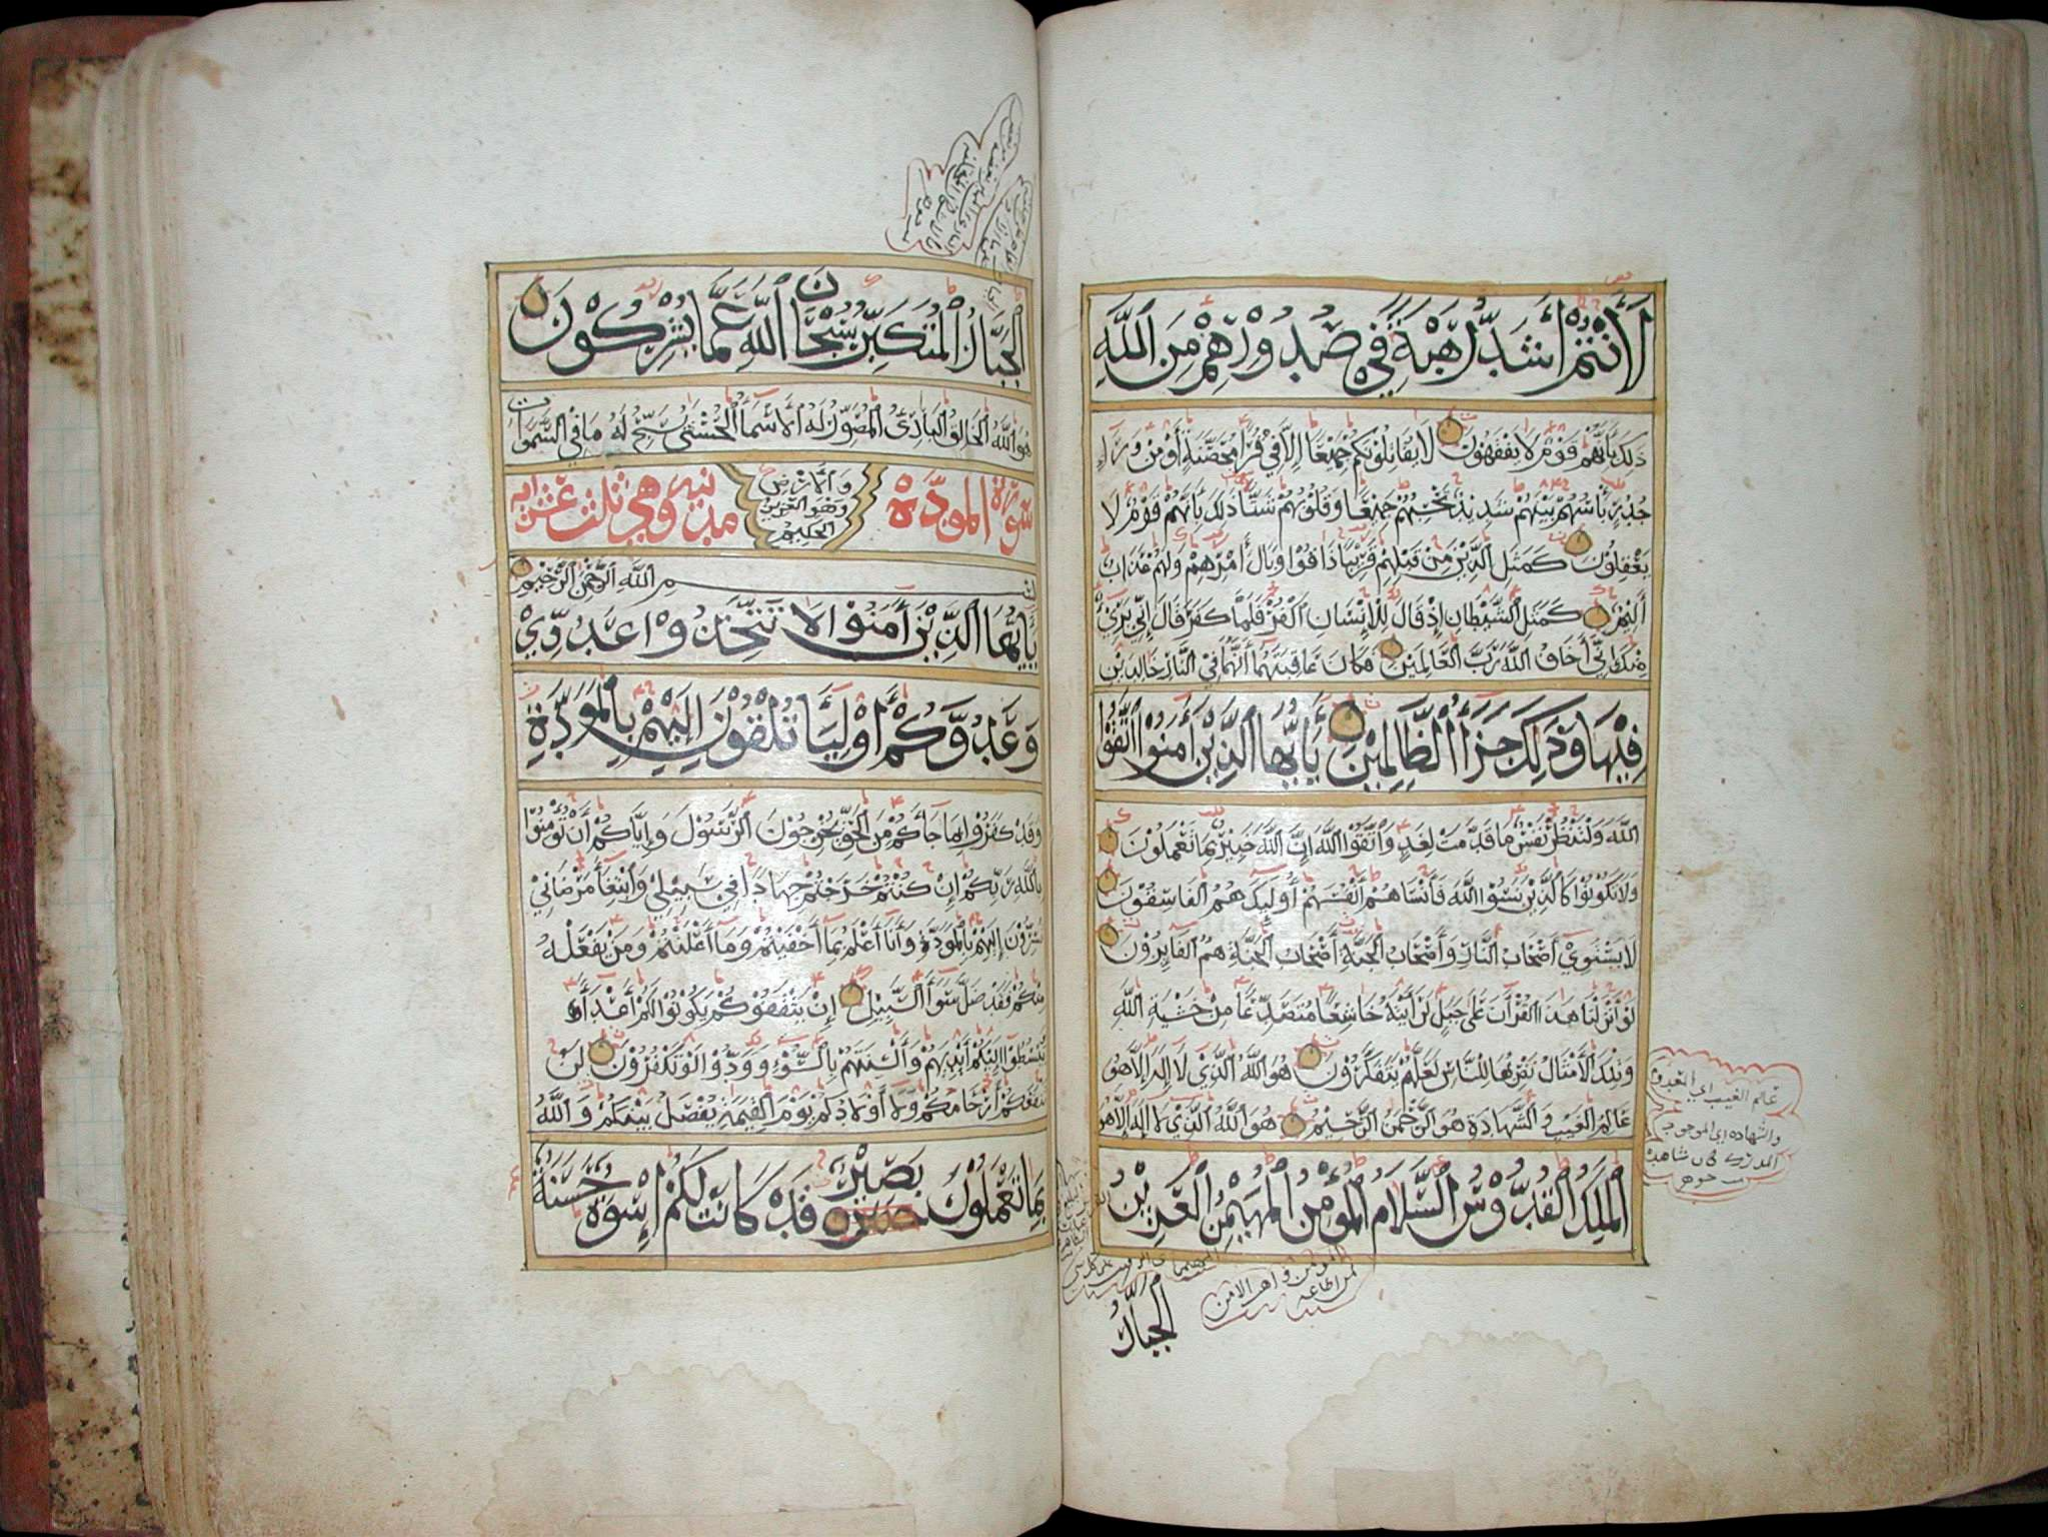 لَأَنْتُمْ أَشَدُّ رَهْبَةً فِي صُدُورِهِمْ مِنَ اللَّهِ
ذَلِكَ بِأَنَّهُمْ قَوْمٌ لَا يَفْقَهُونَ لَا يُقَاتِلُونَكُمْ جَمِيعًا إِلَّا فِي قُرًى مُحَصَّنَةٍ أَوْ مِنْ وَرَاءِ
جُدُرٍ بَأْسُهُمْ بَيْنَهُمْ شَدِيدٌ تَحْسَبُهُمْ جَمِيعًا وَقُلُوبُهُمْ شَتَّى ذَلِكَ بِأَنَّهُمْ قَوْمٌ لَا
يَعْقِلُونَ كَمَثَلِ الَّذِينَ مِنْ قَبْلِهِمْ قَرِيبًا ذَاقُوا وَبَالَ أَمْرِهِمْ وَلَهُمْ عَذَابٌ
أَلِيمٌ كَمَثَلِ الشَّيْطَانِ إِذْ قَالَ لِلْإِنْسَانِ اكْفُرْ فَلَمَّا كَفَرَ قَالَ إِنِّي بَرِيءٌ
مِنْكَ إِنِّي أَخَافُ اللَّهَ رَبَّ الْعَالَمِينَ فَكَانَ عَاقِبَتَهُمَا أَنَّهُمَا فِي النَّارِ خَالِدَيْنِ
فِيهَا وَذَلِكَ جَزَاءُ الظَّالِمِينَ يَا أَيُّهَا الَّذِينَ آمَنُوا اتَّقُوا
اللَّهَ وَلْتَنْظُرْ نَفْسٌ مَا قَدَّمَتْ لِغَدٍ وَاتَّقُوا اللَّهَ إِنَّ اللَّهَ خَبِيرٌ بِمَا تَعْمَلُونَ
وَلَا تَكُونُوا كَالَّذِينَ نَسُوا اللَّهَ فَأَنْسَاهُمْ أَنْفُسَهُمْ أُولَئِكَ هُمُ الْفَاسِقُونَ
لَا يَسْتَوِي أَصْحَابُ النَّارِ وَأَصْحَابُ الْجَنَّةِ أَصْحَابُ الْجَنَّةِ هُمُ الْفَائِزُونَ
لَوْ أَنْزَلْنَا هَذَا الْقُرْآنَ عَلَى جَبَلٍ لَرَأَيْتَهُ خَاشِعًا مُتَصَدِّعًا مِنْ خَشْيَةِ اللَّهِ
وَتِلْكَ الْأَمْثَالُ نَضْرِبُهَا لِلنَّاسِ لَعَلَّهُمْ يَتَفَكَّرُونَ هُوَ اللَّهُ الَّذِي لَا إِلَهَ إِلَّا هُوَ
عَالِمُ الْغَيْبِ وَالشَّهَادَةِ هُوَ الرَّحْمَنُ الرَّحِيمُ هُوَ اللَّهُ الَّذِي لَا إِلَهَ إِلَّا هُوَ
الْمَلِكُ الْقُدُّوسُ السَّلَامُ الْمُؤْمِنُ الْمُهَيْمِنُ الْعَزِيزُ
الْجَبَّارُ
عالم الغيب اي
والشهاده اي الموجود
الْجَبَّارُ الْمُتَكَبِّرُ سُبْحَانَ اللَّهِ عَمَّا يُشْرِكُونَ
هُوَ اللَّهُ الْخَالِقُ الْبَارِئُ الْمُصَوِّرُ لَهُ الْأَسْمَاءُ الْحُسْنَى يُسَبِّحُ لَهُ مَا فِي السَّمَوَاتِ
وَالْأَرْضِ
وَهُوَ الْعَزِيزُ
الْحَكِيمُ
سورة المودة مدنيه وهي ثلث عشر آيه
بسم الله الرحمن الرحيم
يَا أَيُّهَا الَّذِينَ آمَنُوا لَا تَتَّخِذُوا عَدُوِّي
وَعَدُوَّكُمْ أَوْلِيَاءَ تُلْقُونَ إِلَيْهِمْ بِالْمَوَدَّةِ
وَقَدْ كَفَرُوا بِمَا جَاءَكُمْ مِنَ الْحَقِّ يُخْرِجُونَ الرَّسُولَ وَإِيَّاكُمْ أَنْ تُؤْمِنُوا
بِاللَّهِ رَبِّكُمْ إِنْ كُنْتُمْ خَرَجْتُمْ جِهَادًا فِي سَبِيلِي وَابْتِغَاءَ مَرْضَاتِي
تُسِرُّونَ إِلَيْهِمْ بِالْمَوَدَّةِ وَأَنَا أَعْلَمُ بِمَا أَخْفَيْتُمْ وَمَا أَعْلَنْتُمْ وَمَنْ يَفْعَلْهُ
مِنْكُمْ فَقَدْ ضَلَّ سَوَاءَ السَّبِيلِ إِنْ يَثْقَفُوكُمْ يَكُونُوا لَكُمْ أَعْدَاءً وَ
يَبْسُطُوا إِلَيْكُمْ أَيْدِيَهُمْ وَأَلْسِنَتَهُمْ بِالسُّوءِ وَوَدُّوا لَوْ تَكْفُرُونَ لَنْ
تَنْفَعَكُمْ أَرْحَامُكُمْ وَلَا أَوْلَادُكُمْ يَوْمَ الْقِيَمَةِ يُفْصَلُ بَيْنَكُمْ وَاللَّهُ
بِمَا تَعْمَلُونَ بَصِيرٌ قَدْ كَانَتْ لَكُمْ إِسْوَةٌ حَسَنَةٌ